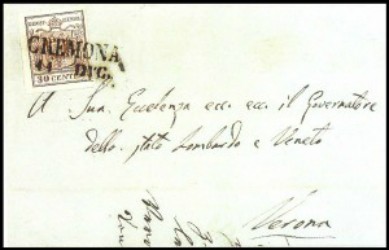 CREMONA
11 DIC.
30 CENTES
A Sua Eccelenza ecc. ecc. il Governatore
dello stato Lombardo e Veneto
Verona